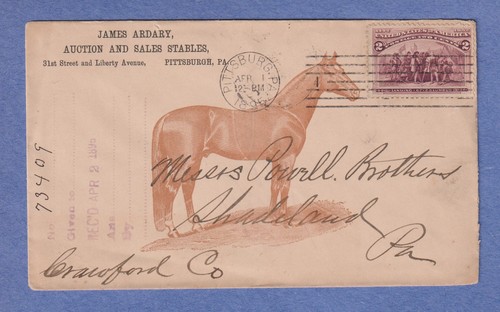 JAMES ARDARY,
AUCTION AND SALES STABLES,
31st Street and Liberty Avenue, PITTSBURGH, PA.
PITTSBURG, PA.
APR 1
1
2
UNITED STATES OF AMERICA
2
Messrs Powell Brothers
Shadeland
Pa
Crawford Co
73409
No
Given to
REC'D APR 2 1895
Ans
By